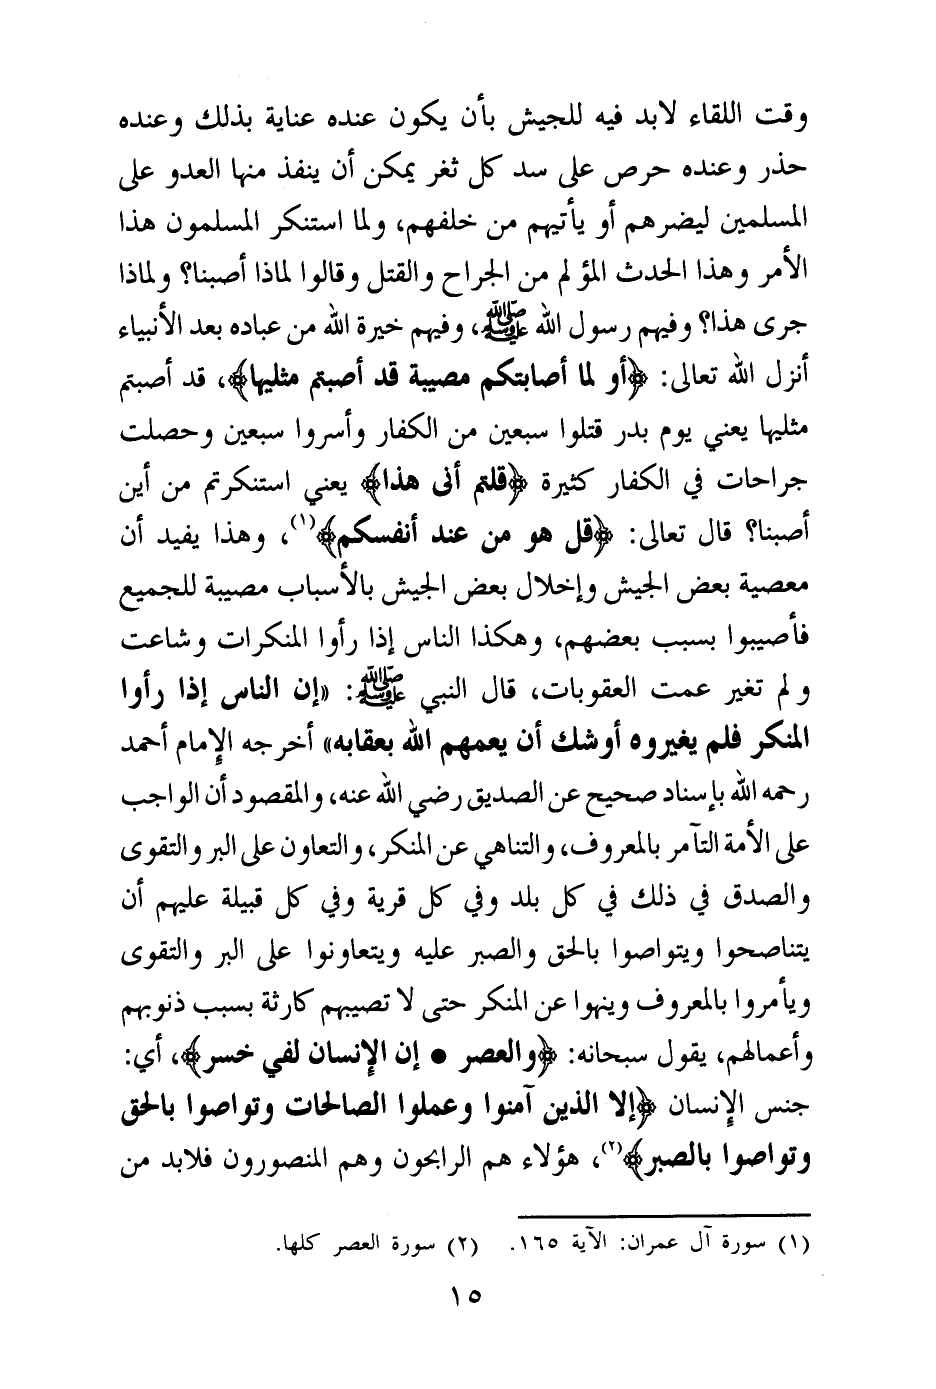 وقت اللقاء لابد فيه للجيش بأن يكون عنده عناية بذلك وعنده
حذر وعنده حرص على سد كل ثغر يمكن أن ينفذ منها العدو على
المسلمين ليضرهم أو يأتيهم من خلفهم، ولما استنكر المسلمون هذا
الأمر وهذا الحدث المؤلم من الجراح والقتل وقالوا لماذا أصبنا؟ ولماذا
جرى هذا؟ وفيهم رسول الله ﷺ، وفيهم خيرة الله من عباده بعد الأنبياء
أنزل الله تعالى: ﴿أو لما أصابتكم مصيبة قد أصبتم مثليها﴾، قد أصبتم
مثليها يعني يوم بدر قتلوا سبعين من الكفار وأسروا سبعين وحصلت
جراحات في الكفار كثيرة ﴿قلتم أنى هذا﴾ يعني استنكرتم من أين
أصبنا؟ قال تعالى: ﴿قل هو من عند أنفسكم﴾(١)، وهذا يفيد أن
معصية بعض الجيش وإخلال بعض الجيش بالأسباب مصيبة للجميع
فأصيبوا بسبب بعضهم، وهكذا الناس إذا رأوا المنكرات وشاعت
ولم تغير عمت العقوبات، قال النبي ﷺ: «إن الناس إذا رأوا
المنكر فلم يغيروه أوشك أن يعمهم الله بعقابه» أخرجه الإمام أحمد
رحمه الله بإسناد صحيح عن الصديق رضي الله عنه، والمقصود أن الواجب
على الأمة التآمر بالمعروف، والتناهي عن المنكر، والتعاون على البر والتقوى
والصدق في ذلك في كل بلد وفي كل قرية وفي كل قبيلة عليهم أن
يتناصحوا ويتواصوا بالحق والصبر عليه ويتعاونوا على البر والتقوى
ويأمروا بالمعروف وينهوا عن المنكر حتى لا تصيبهم كارثة بسبب ذنوبهم
وأعمالهم، يقول سبحانه: ﴿والعصر ● إن الإنسان لفي خسر﴾، أي:
جنس الإنسان ﴿إلا الذين آمنوا وعملوا الصالحات وتواصوا بالحق
وتواصوا بالصبر﴾(٢)، هؤلاء هم الرابحون وهم المنصورون فلابد من
(١) سورة آل عمران: الآية ١٦٥. (٢) سورة العصر كلها.
١٥